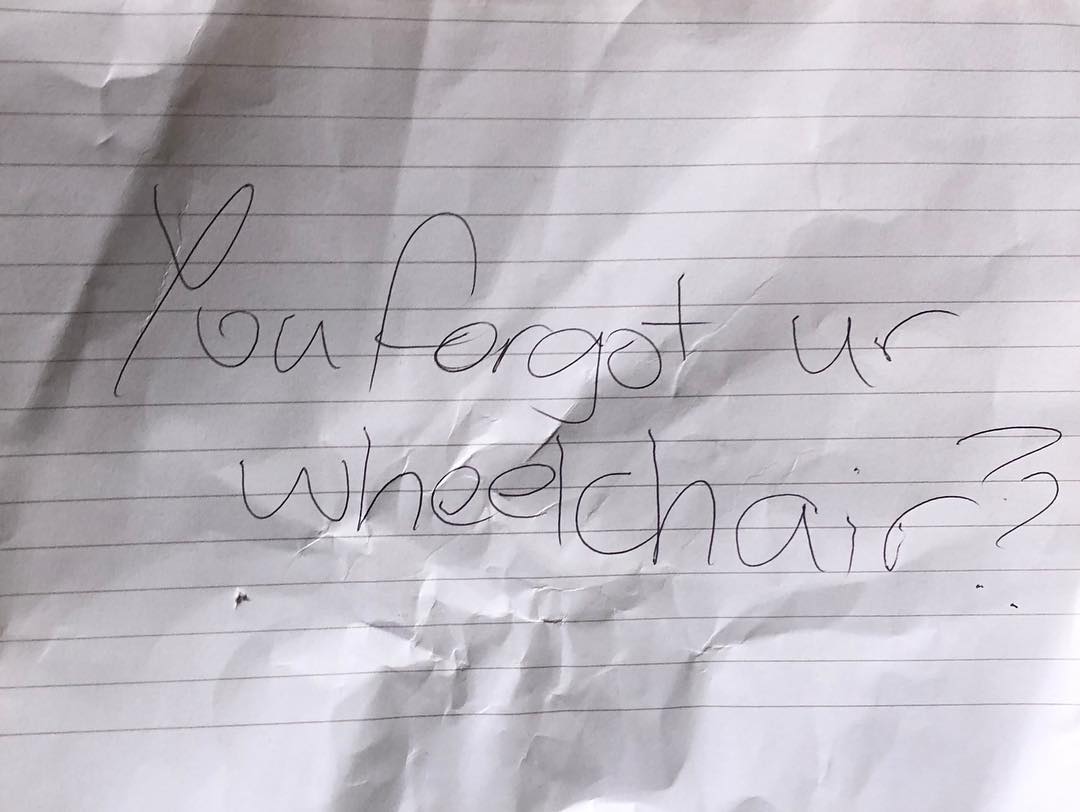 You forgot ur
wheelchair?